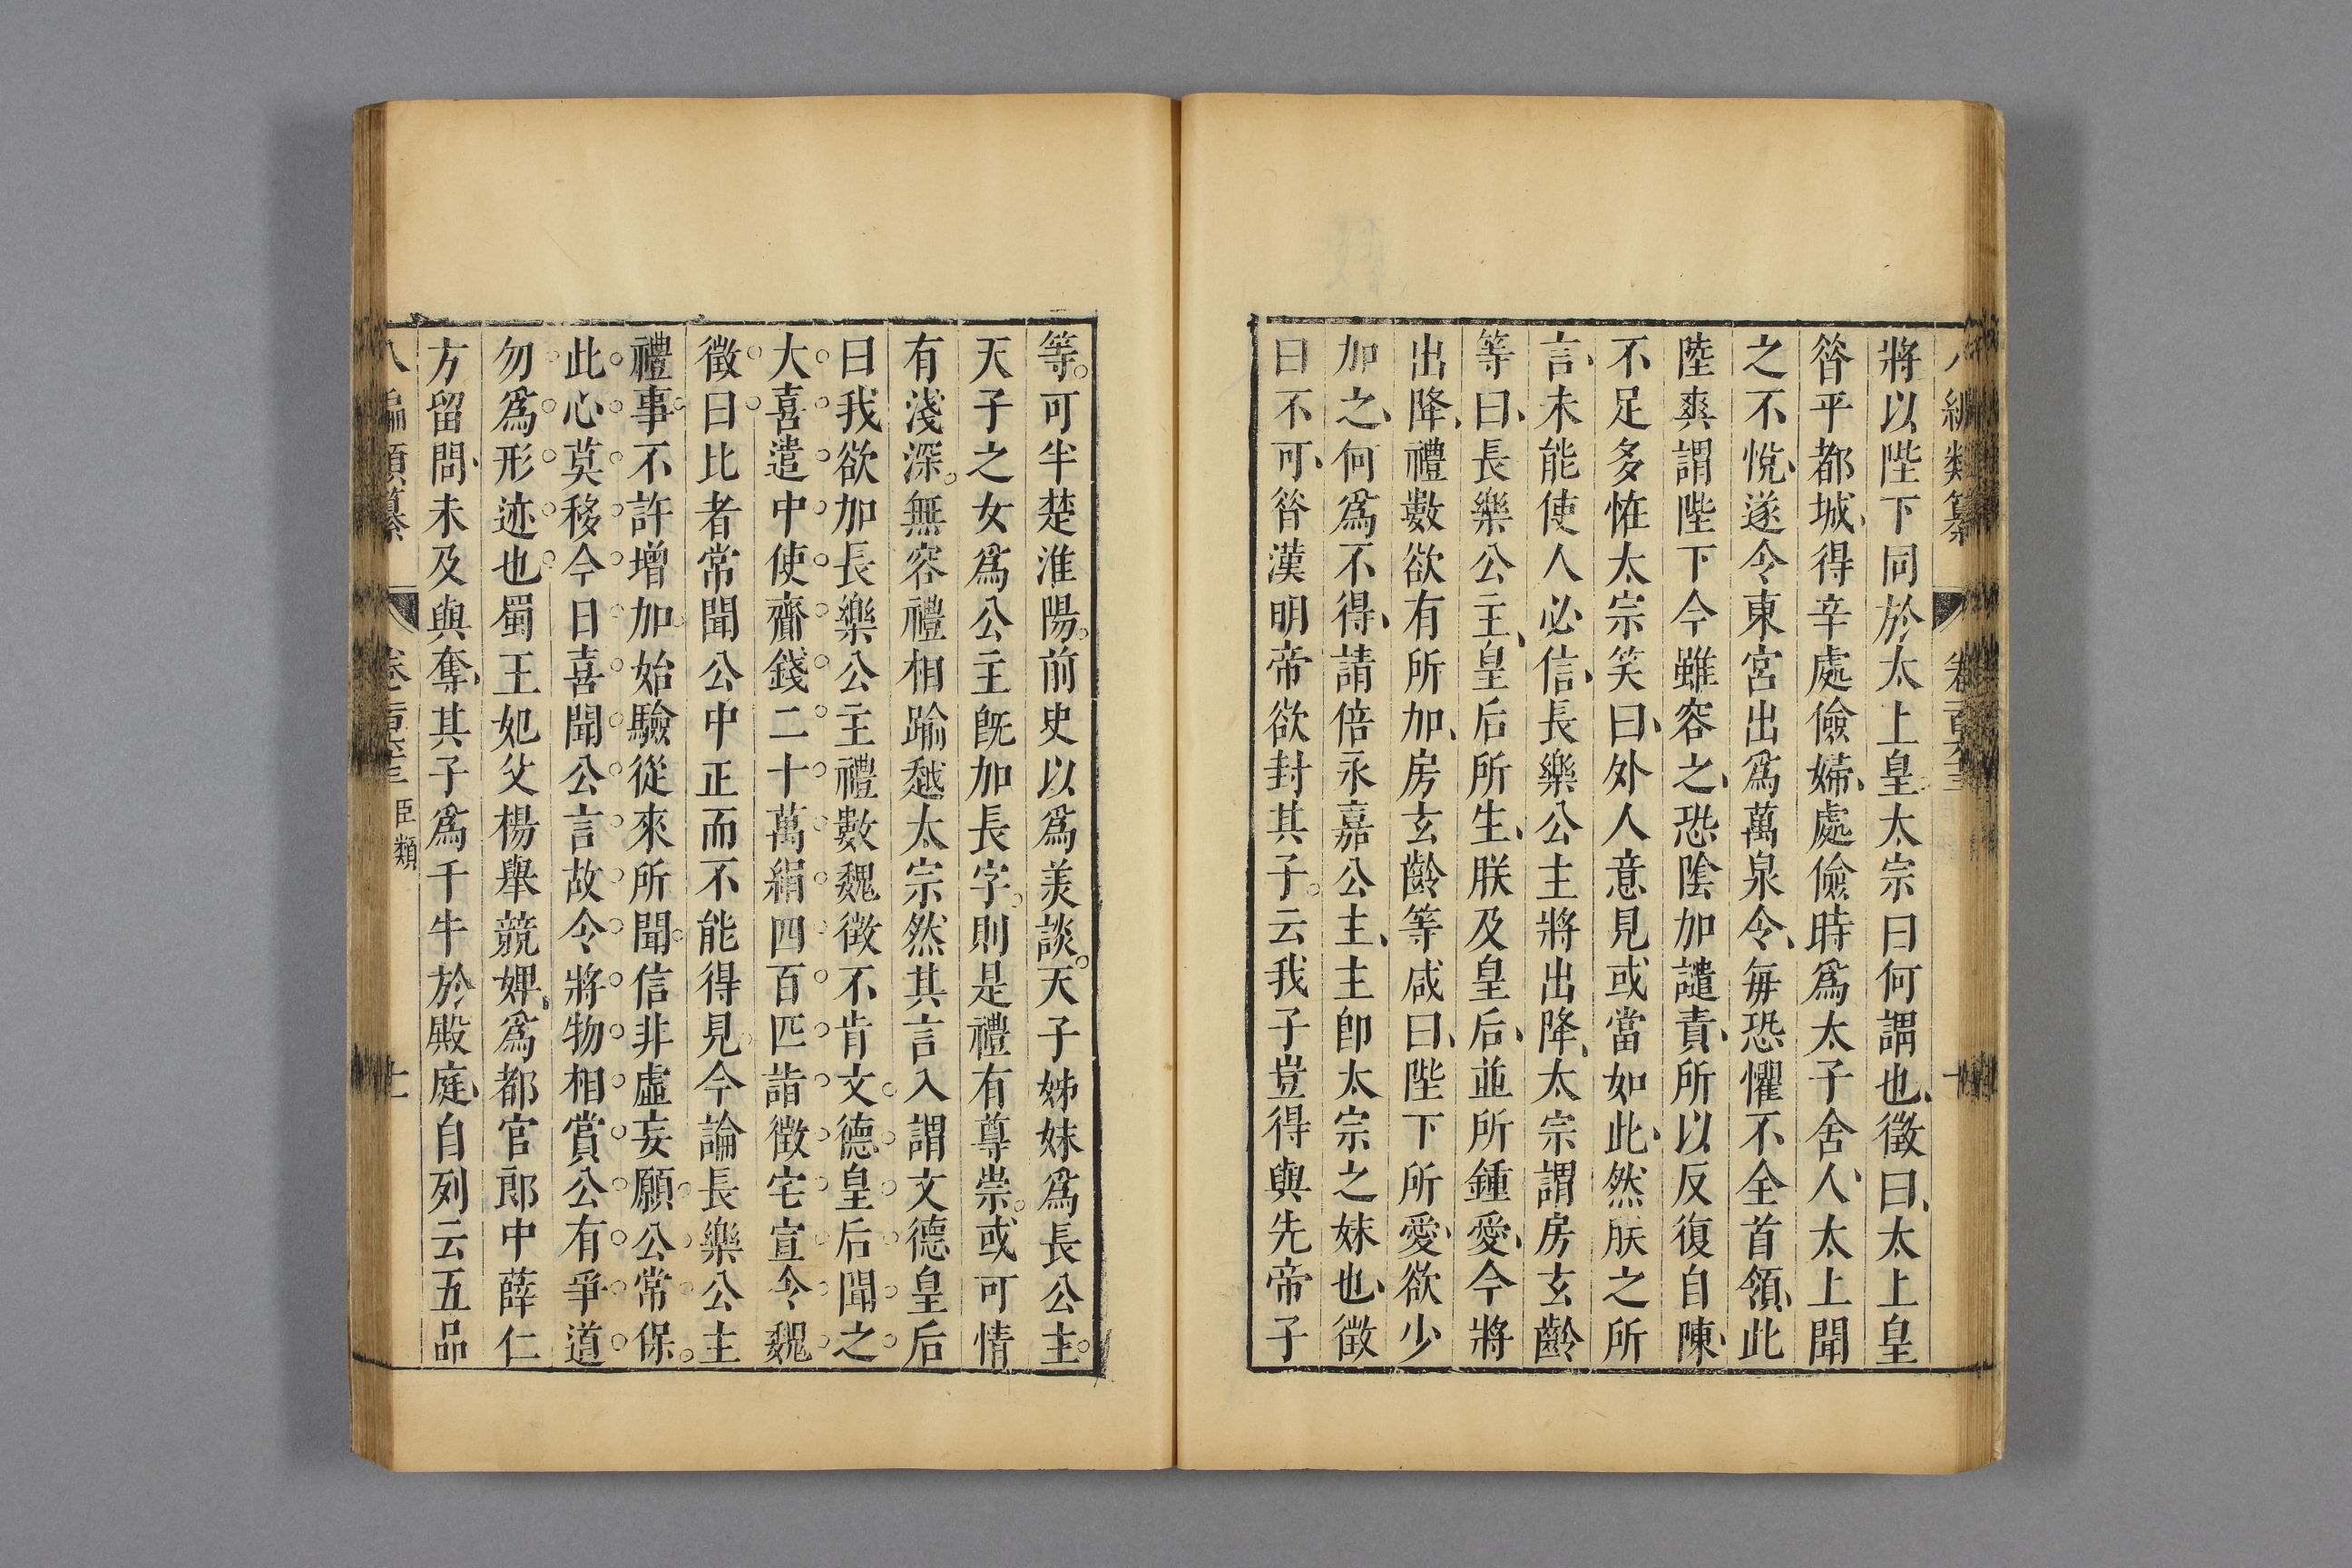 八編類纂 卷二百六十三 十
將以陛下同於太上皇太宗曰何謂也徵曰太上皇
昝平都城得辛處儉婦處儉時爲太子舍人太上聞
之不悅遂令東宮出爲萬泉令每恐懼不全首領此
陸爽謂陛下今雖容之恐陰加譴責所以反復自陳
不足多恠太宗笑曰外人意見或當如此然朕之所
言未能使人必信長樂公主將出降太宗謂房玄齡
等曰長樂公主皇后所生朕及皇后並所鍾愛今將
出降禮數欲有所加房玄齡等咸曰陛下所愛欲少
加之何爲不得請倍永嘉公主主卽太宗之妹也徵
曰不可昝漢明帝欲封其子云我子豈得與先帝子
等可半楚淮陽前史以爲美談天子姊妹爲長公主
天子之女爲公主旣加長字則是禮有尊崇或可情
有淺深無容禮相踰越太宗然其言入謂文德皇后
曰我欲加長樂公主禮數魏徵不肯文德皇后聞之
大喜遣中使齎錢二十萬絹四百匹詣徵宅宣令魏
徵曰比者常聞公中正而不能得見今論長樂公主
禮事不許增加始驗從來所聞信非虛妄願公常保
此心莫移今日喜聞公言故令將物相賞公有爭道
勿爲形迹也蜀王妃父楊舉競婢爲都官郎中薛仁
方留問未及與奪其子爲千牛於殿庭自列云五品
八編類纂 卷二百六十三 臣類 十一